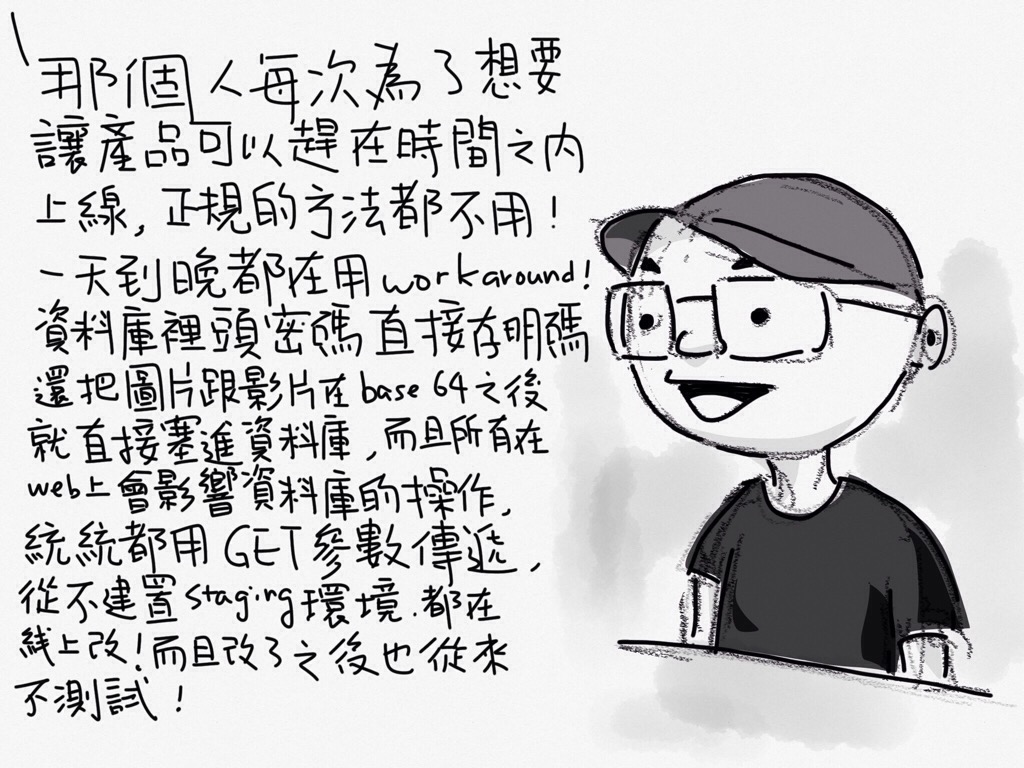 那個人每次為了想要
讓產品可以趕在時間之內
上線,正規的方法都不用!
一天到晚都在用workaround!
資料庫裡頭密碼直接存明碼
還把圖片跟影片在base 64之後
就直接塞進資料庫,而且所有在
web上會影響資料庫的操作,
統統都用GET參數傳遞,
從不建置staging環境.都在
线上改!而且改了之後也從來
不測試!